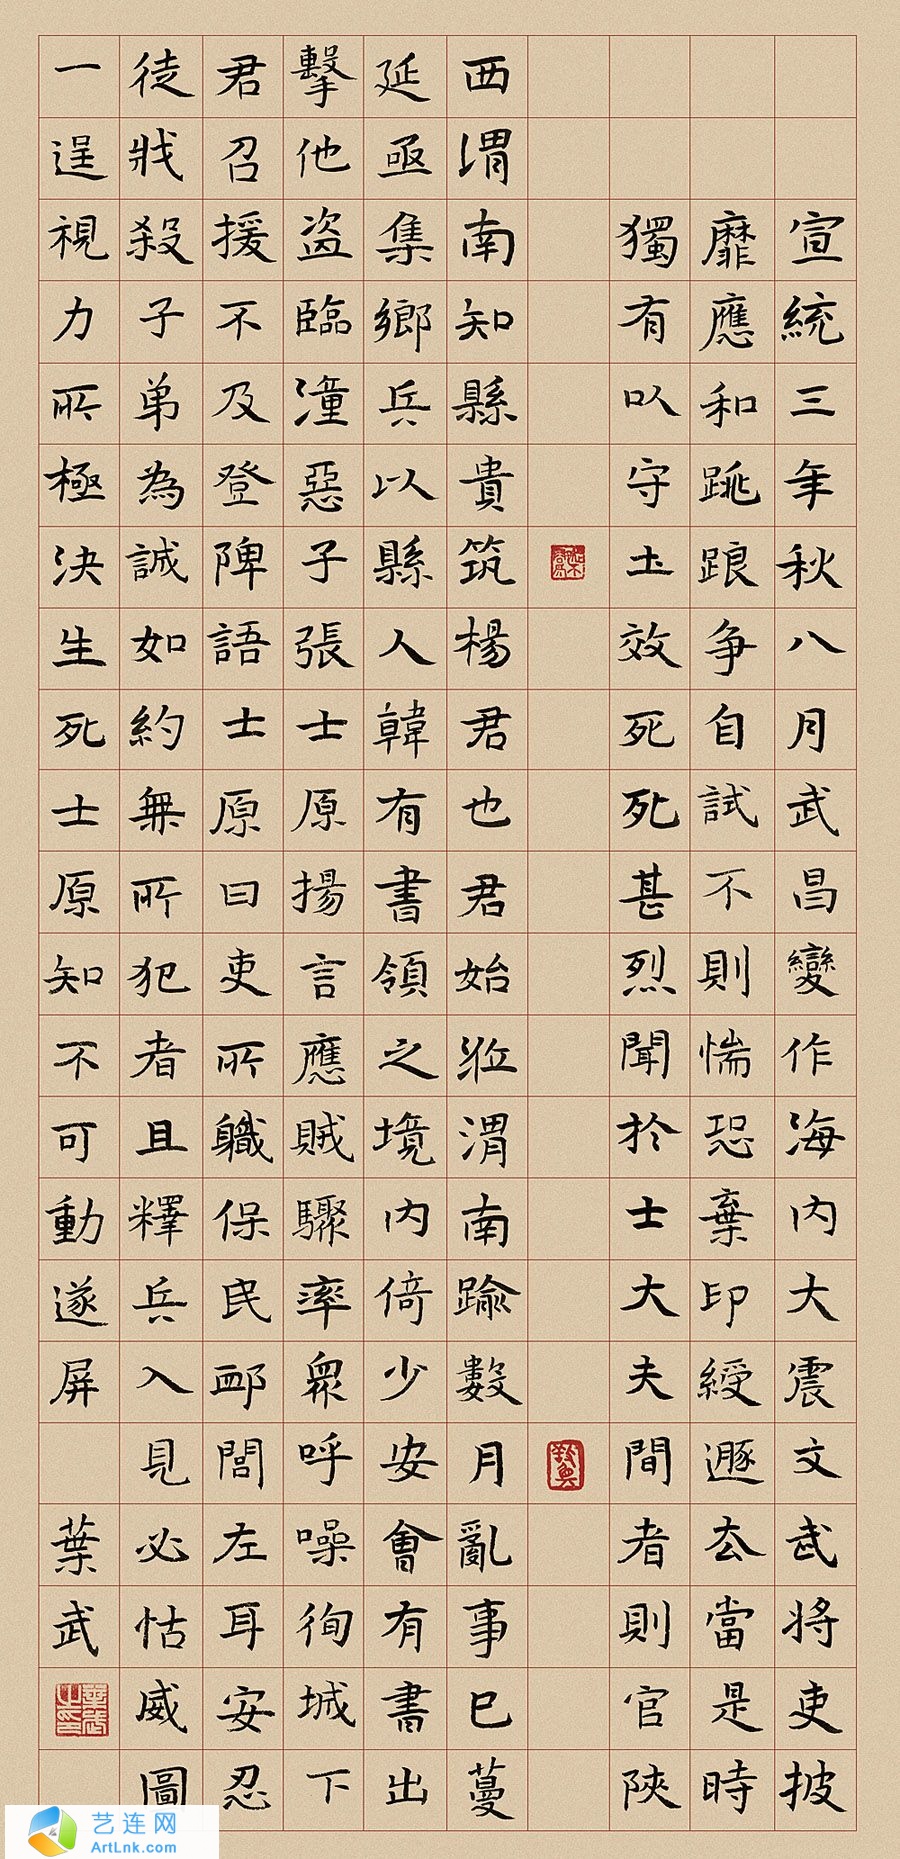 宣統三年秋八月武昌變作海内大震文武將吏披
靡應和跳踉争自試不則惴恐棄印綬遯去當是時
獨有以守土效死死甚烈聞於士大夫間者則官陝
西渭南知縣貴筑楊君也君始涖渭南踰數月亂事已蔓
延亟集鄉兵以縣人韓有書領之境内倚少安會有書出
擊他盜臨潼惡子張士原揚言應賊驟率衆呼噪徇城下
君召援不及登陴語士原曰吏所職保民卹閭左耳安忍
徒戕殺子弟為誠如約無所犯者且釋兵入見必怙威圖
一逞視力所極決生死士原知不可動遂屏
葉武
艺连网
ArtLnk.com